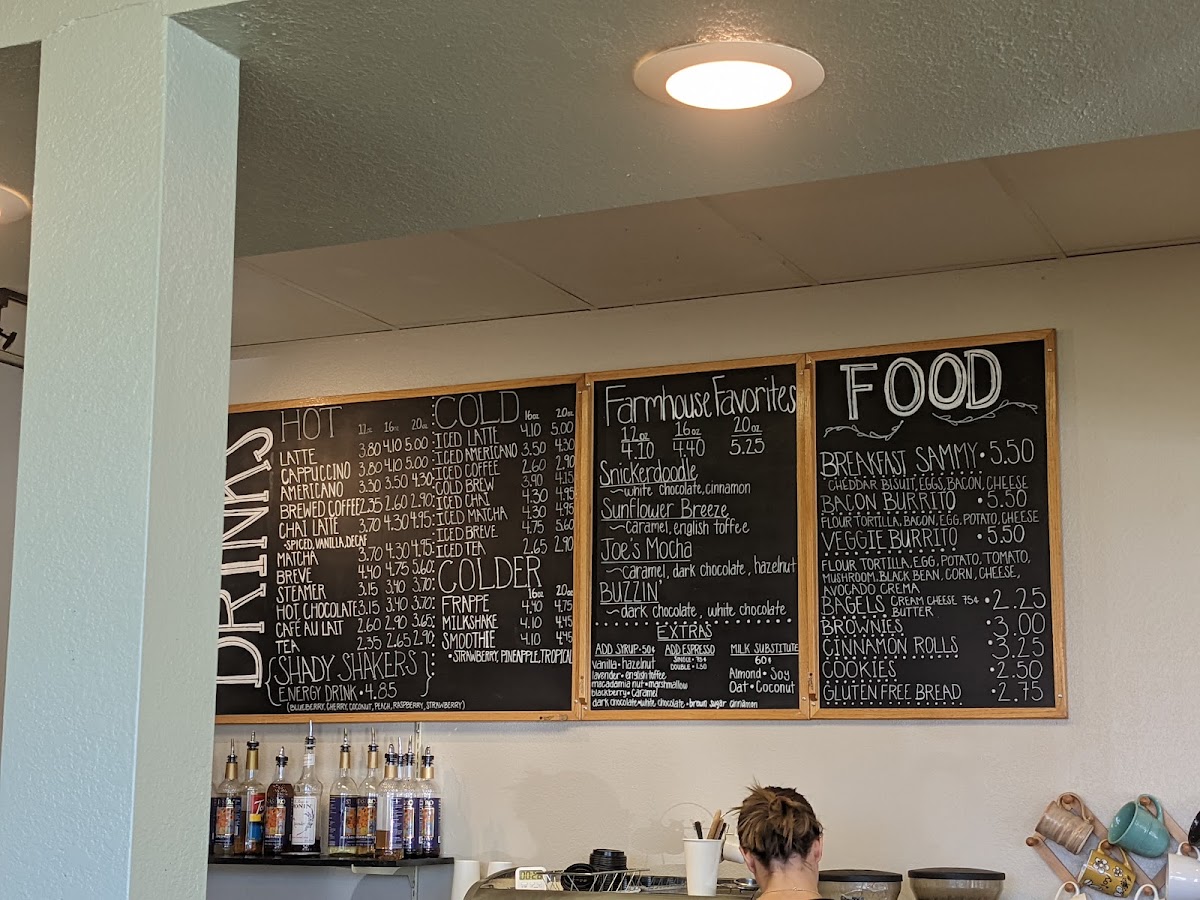 DRINKS
HOT 12oz 16oz 20oz
LATTE 3.80 4.10 5.00
CAPPUCCINO 3.80 4.10 5.00
AMERICANO 3.30 3.50 4.30
BREWED COFFEE 2.35 2.60 2.90
CHAI LATTE 3.70 4.30 4.95
-SPICED, VANILLA, DECAF
MATCHA 3.70 4.30 4.95
BREVE 4.40 4.75 5.60
STEAMER 3.15 3.40 3.70
HOT CHOCOLATE 3.15 3.40 3.70
CAFÉ AU LAIT 2.60 2.90 3.65
TEA 2.35 2.65 2.90
{SHADY SHAKERS}
ENERGY DRINK • 4.85
(BLUEBERRY, CHERRY, COCONUT, PEACH, RASPBERRY, STRAWBERRY)
COLD 16oz 20oz
ICED LATTE 4.10 5.00
ICED AMERICANO 3.50 4.30
ICED COFFEE 2.60 2.90
COLD BREW 3.90 4.15
ICED CHAI 4.30 4.95
ICED MATCHA 4.30 4.95
ICED BREVE 4.75 5.60
ICED TEA 2.65 2.90
COLDER 16oz 20oz
FRAPPE 4.40 4.75
MILKSHAKE 4.10 4.45
SMOOTHIE 4.10 4.45
• STRAWBERRY, PINEAPPLE, TROPICAL
Farmhouse Favorites
12oz 16oz 20oz
4.10 4.40 5.25
Snickerdoodle
~white chocolate, cinnamon
Sunflower Breeze
~caramel, english toffee
Joe's Mocha
~caramel, dark chocolate, hazelnut
BUZZIN'
~dark chocolate, white chocolate
EXTRAS
ADD SYRUP • 50¢
vanilla • hazelnut
lavender • english toffee
macadamia nut • marshmallow
blackberry • caramel
dark chocolate • white chocolate • brown sugar cinnamon
ADD ESPRESSO
SINGLE • 75¢
DOUBLE • 1.50
MILK SUBSTITUTE
60¢
Almond • Soy
Oat • Coconut
FOOD
BREAKFAST SAMMY • 5.50
CHEDDAR BISUIT, EGGS, BACON, CHEESE
BACON BURRITO • 5.50
FLOUR TORTILLA, BACON, EGG, POTATO, CHEESE
VEGGIE BURRITO • 5.50
FLOUR TORTILLA, EGG, POTATO, TOMATO,
MUSHROOM, BLACK BEAN, CORN, CHEESE,
AVOCADO CREMA
BAGELS CREAM CHEESE 75¢ BUTTER • 2.25
BROWNIES • 3.00
CINNAMON ROLLS • 3.25
COOKIES • 2.50
GLUTEN FREE BREAD • 2.75